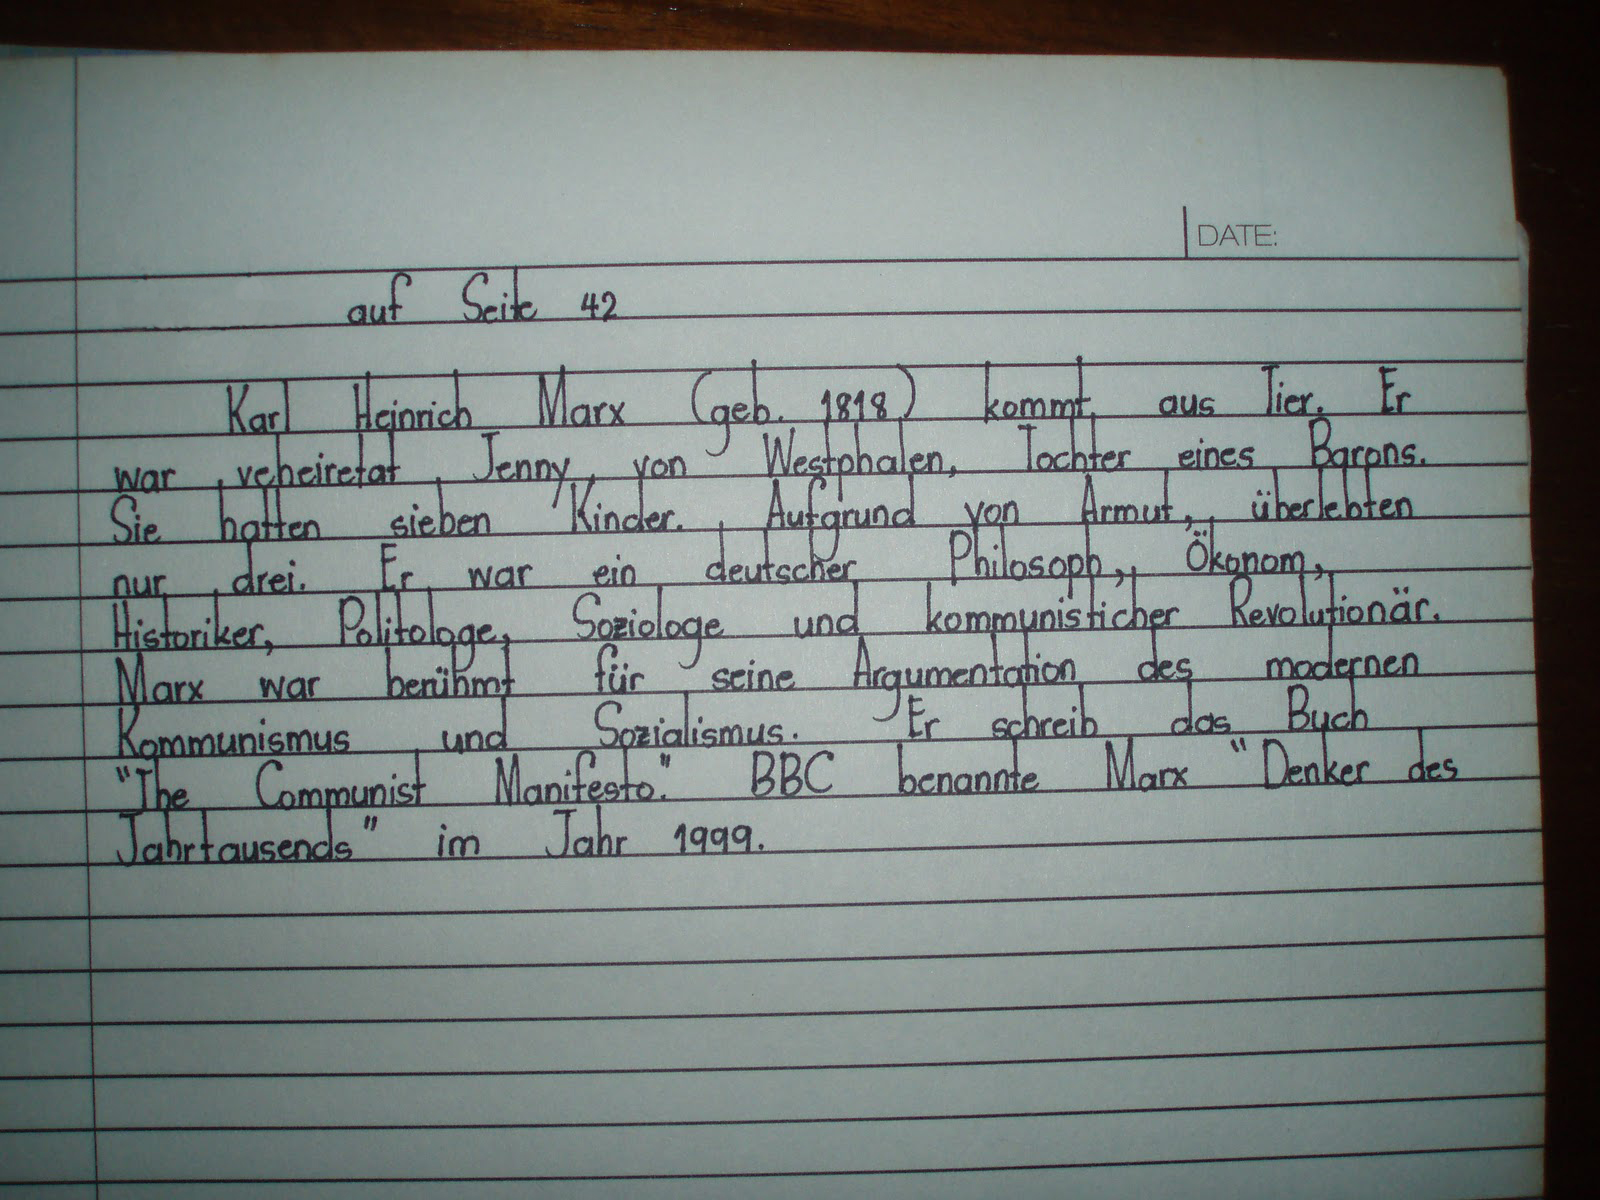 DATE:
auf Seite 42
Karl Heinrich Marx (geb. 1818) kommt aus Tier. Er
war veheiretat Jenny von Westphalen, Tochter eines Barons.
Sie hatten sieben Kinder. Aufgrund von Armut, überlebten
nur drei. Er war ein deutscher Philosoph, Ökonom,
Historiker, Politologe, Soziologe und kommunisticher Revolutionär.
Marx war berühmt für seine Argumentation des modernen
Kommunismus und Sozialismus. Er schreib das Buch
"The Communist Manifesto." BBC benannte Marx "Denker des
Jahrtausends" im Jahr 1999.